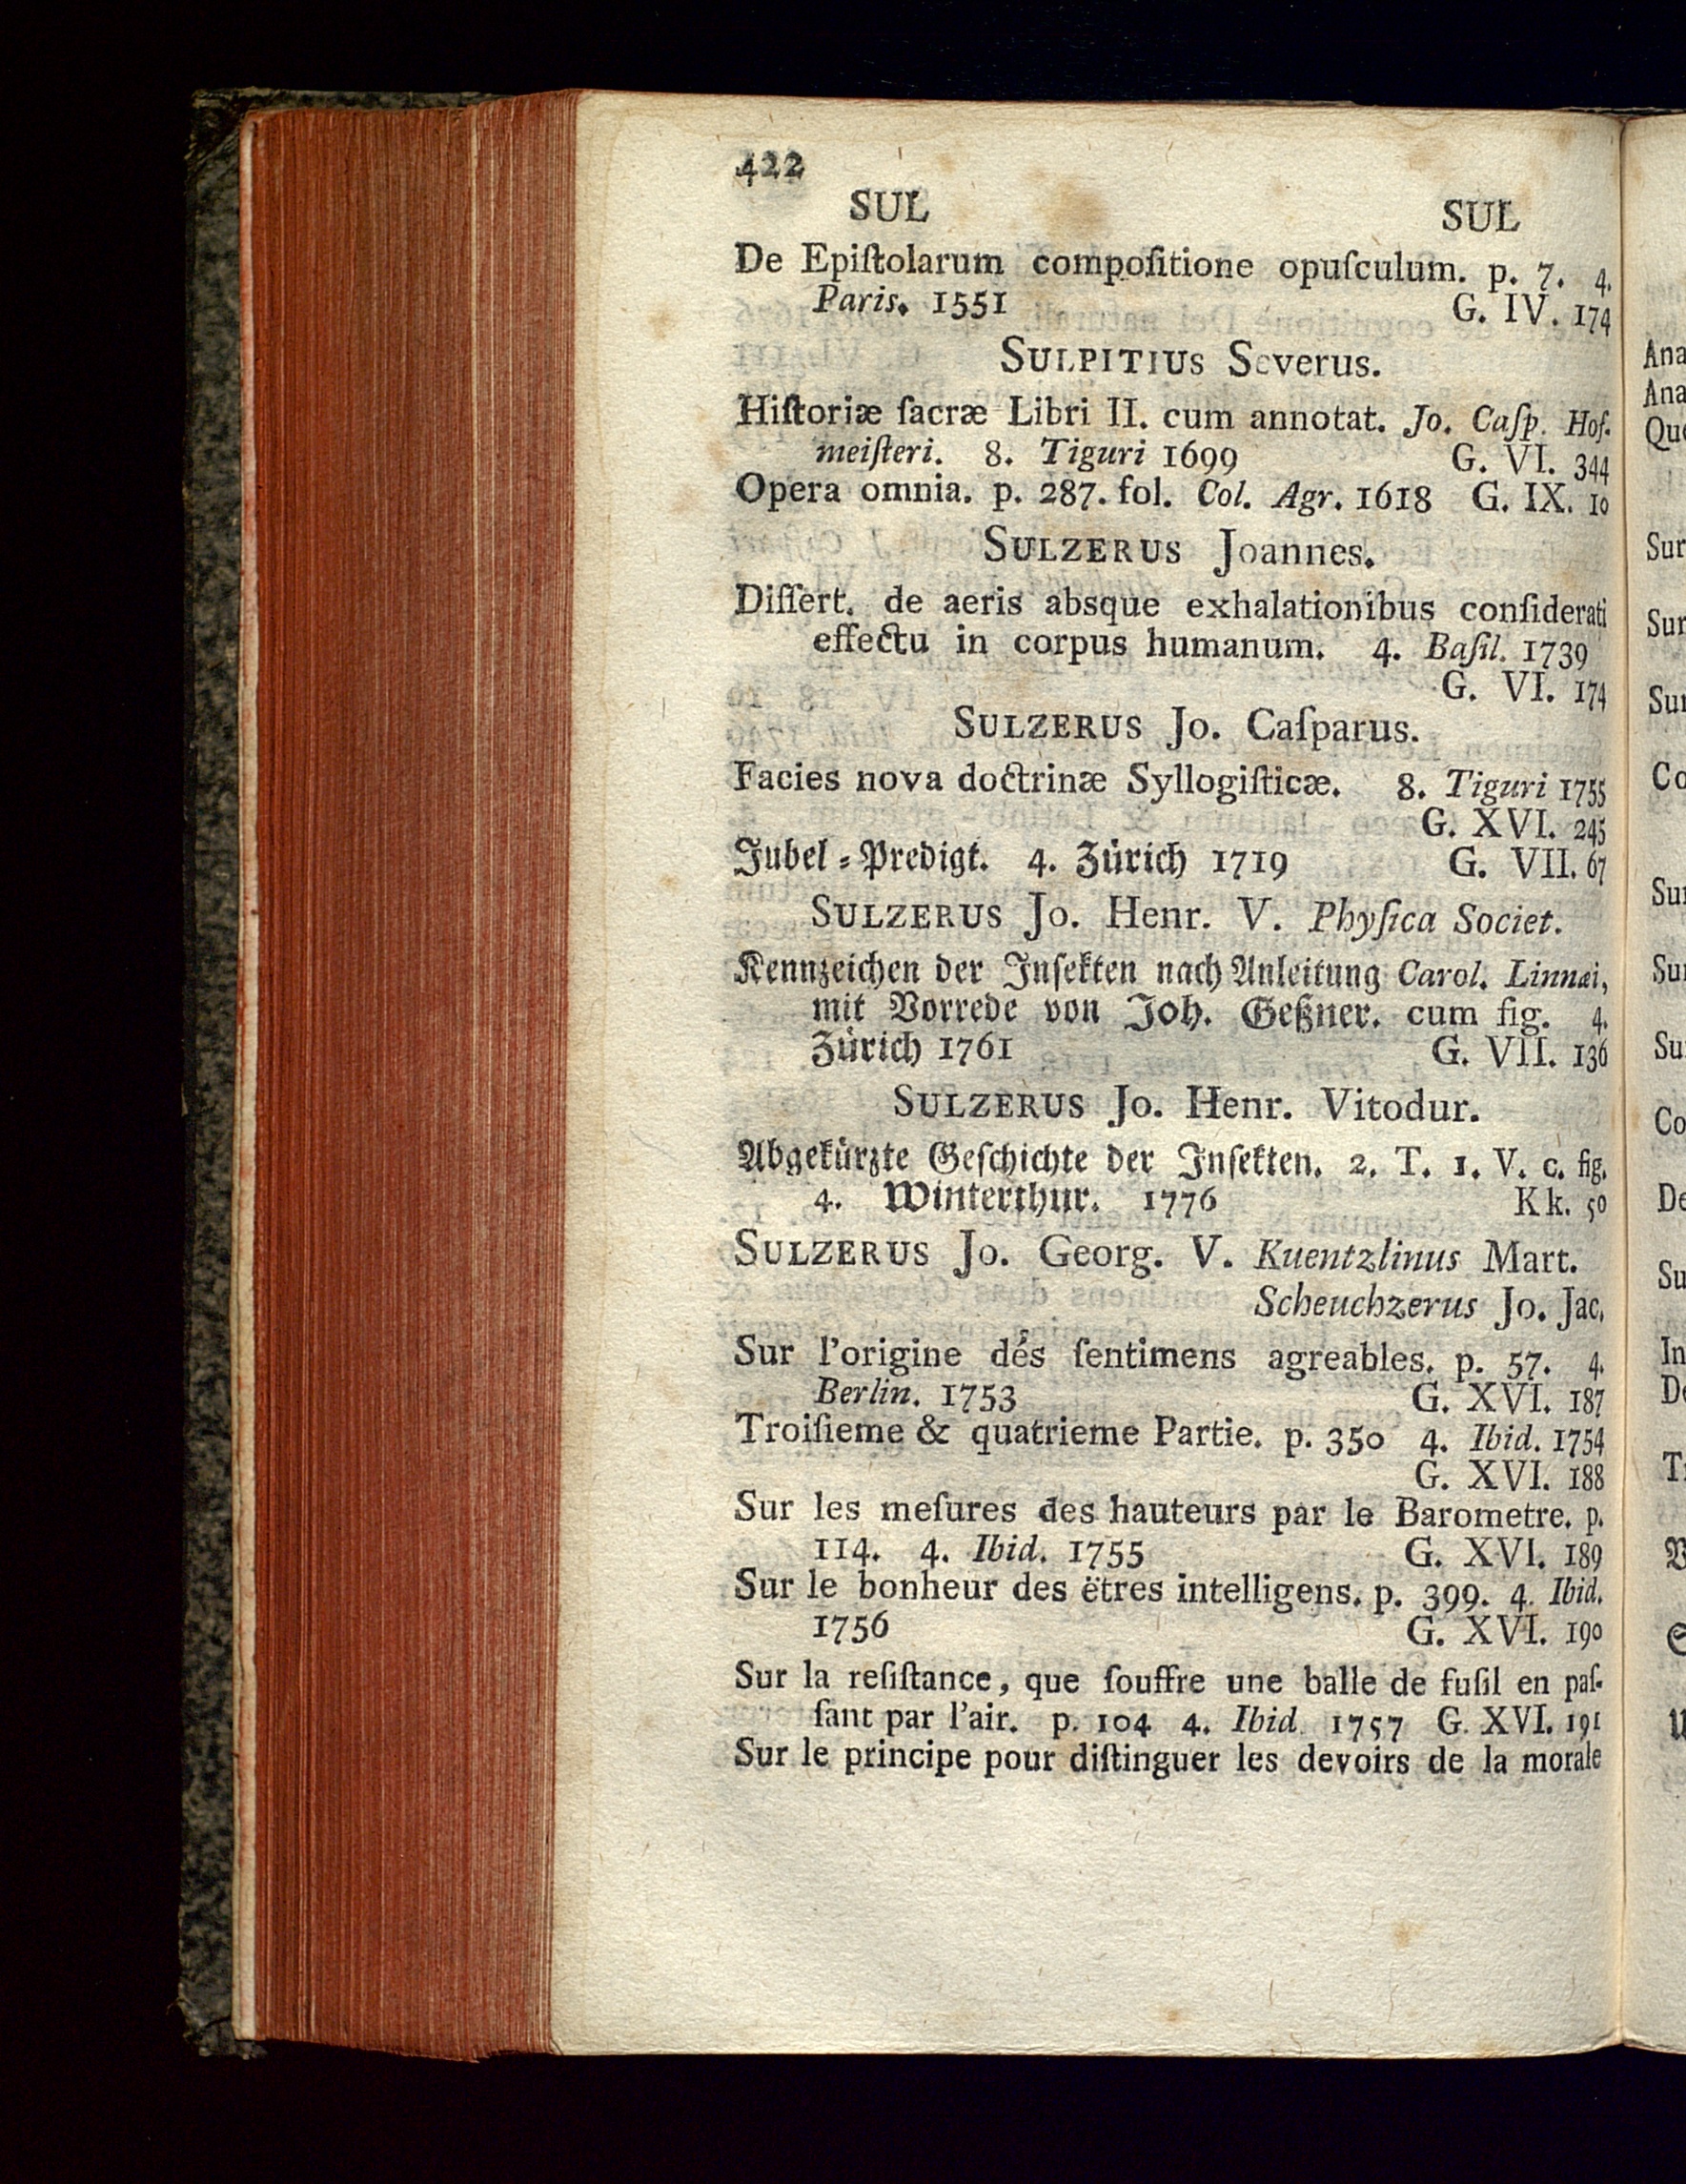 422
SUL SUL
De Epiſtolarum compoſitione opuſculum. p. 7. 4.
Paris. 1551 G. IV. 174
SULPITIUS Severus.
Hiſtoriæ ſacræ Libri II. cum annotat. Jo. Caſp. Hof-
meiſteri. 8. Tiguri 1699 G. VI. 344
Opera omnia. p. 287. fol. Col. Agr. 1618 G. IX. 10
SULZERUS Joannes.
Diſſert. de aeris absque exhalationibus conſiderati
effectu in corpus humanum. 4. Baſil. 1739
G. VI. 174
SULZERUS Jo. Caſparus.
Facies nova doctrinæ Syllogiſticæ. 8. Tiguri 1755
G. XVI. 245
Jubel-Predigt. 4. Zürich 1719 G. VII. 67
SULZERUS Jo. Henr. V. Phyſica Societ.
Kennzeichen der Inſekten nach Anleitung Carol. Linnæi,
mit Vorrede von Joh. Geßner. cum fig. 4.
Zürich 1761 G. VII. 136
SULZERUS Jo. Henr. Vitodur.
Abgekürzte Geſchichte der Inſekten. 2. T. 1. V. c. fig.
4. Winterthur. 1776 Kk. 50
SULZERUS Jo. Georg. V. Kuentzlinus Mart.
Scheuchzerus Jo. Jac.
Sur l'origine dés ſentimens agreables. p. 57. 4.
Berlin. 1753 G. XVI. 187
Troiſieme & quatrieme Partie. p. 350 4. Ibid. 1754
G. XVI. 188
Sur les meſures des hauteurs par le Barometre. p.
114. 4. Ibid. 1755 G. XVI. 189
Sur le bonheur des ëtres intelligens. p. 399. 4. Ibid.
1756 G. XVI. 190
Sur la reſiſtance, que ſouffre une balle de fuſil en paſ-
ſant par l'air. p. 104 4. Ibid. 1757 G. XVI. 191
Sur le principe pour diſtinguer les devoirs de la morale